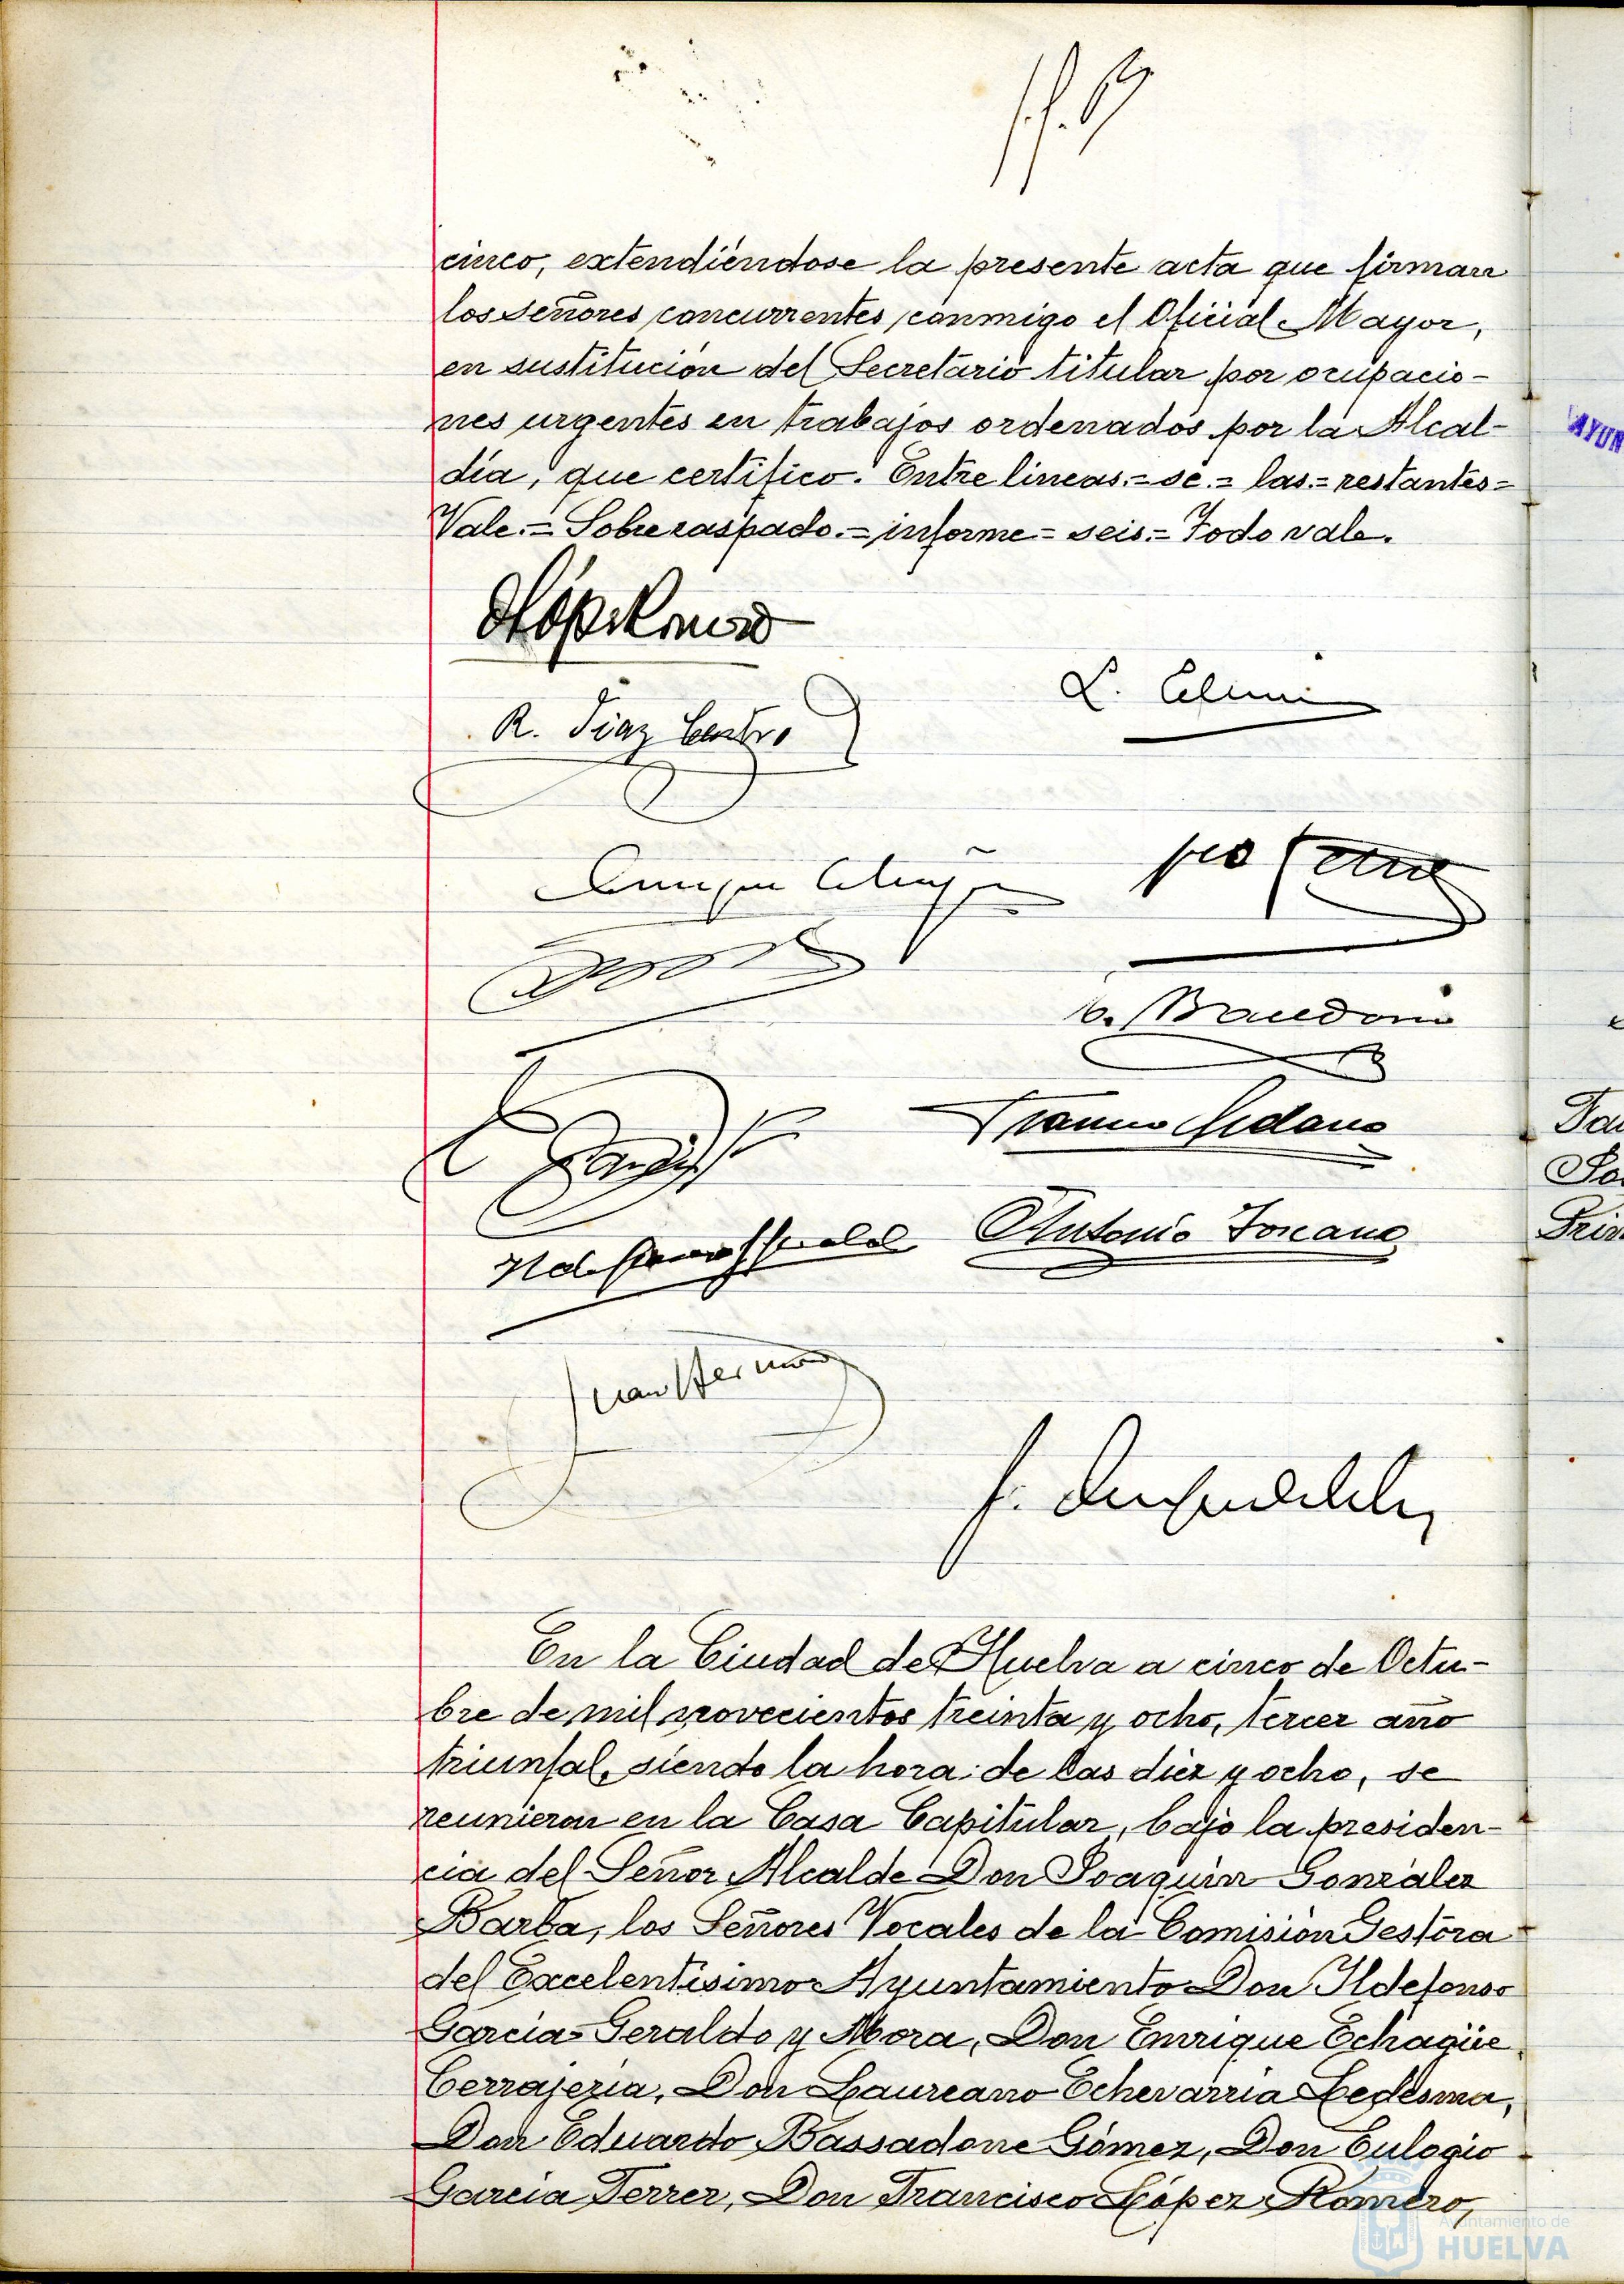 cinco, extendiéndose la presente acta que firman
los señores concurrentes, conmigo el Oficial Mayor,
en sustitución del Secretario titular por ocupacio-
nes urgentes en trabajos ordenados por la Alcal-
día, que certifico. Entre lineas.= se.= las.= restantes=
Vale.= Sobre raspado.= informe= seis.= Todo vale.
R. Diaz Castro
Antonio Toscano
Juan
En la Ciudad de Huelva a cinco de Octu-
bre de mil novecientos treinta y ocho, tercer año
triunfal, siendo la hora de las diez y ocho, se
reunieron en la Casa Capitular, bajo la presiden-
cia del Señor Alcalde Don Joaquín González
Barba, los Señores Vocales de la Comisión Gestora
del Excelentísimo Ayuntamiento Don Ildefonso
García-Geraldo y Mora, Don Enrique Echagüe
Cerrajería, Don Laureano Echevarría Ledesma,
Don Eduardo Bassadone Gómez, Don Eulogio
García Ferrer, Don Francisco López Romero,
AYUN
Ayuntamiento de
HUELVA